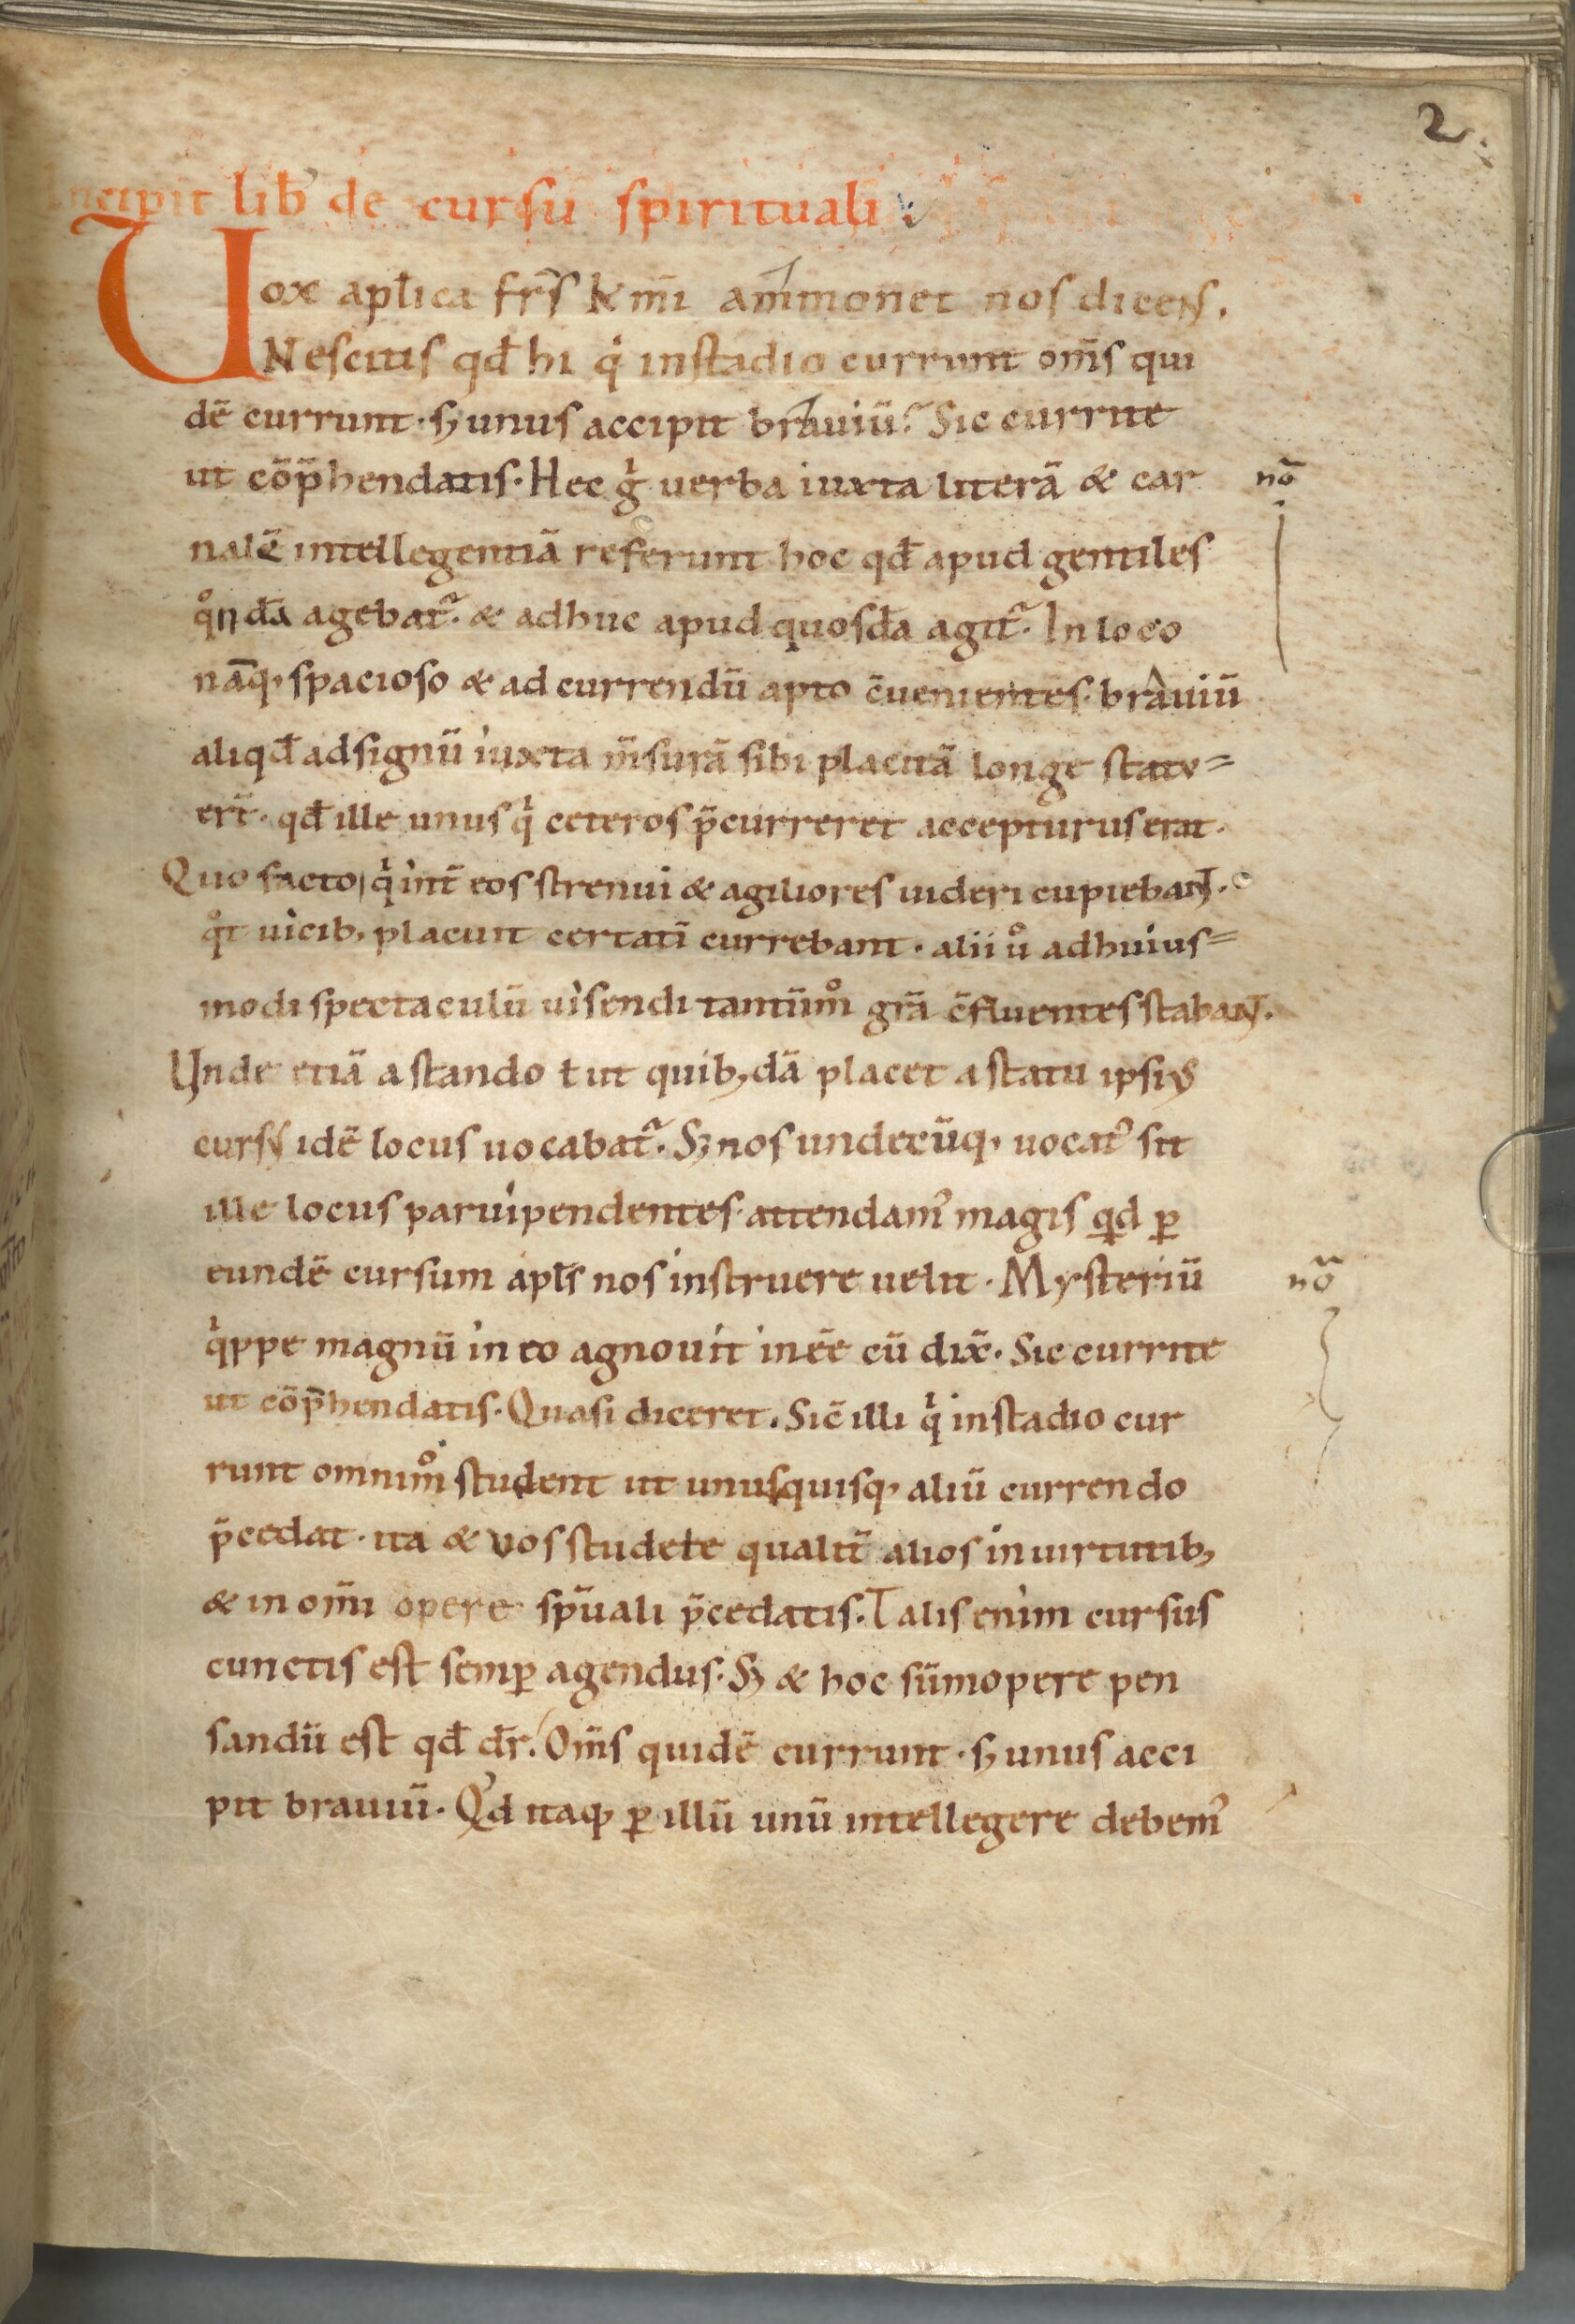 2.
Incipit lib̄ de cursu spirituali
Uox apl̄ica fr̄s km̄i ammonet nos dicens.
Nescitis qd̄ hi qͥ instadio currunt om̄s qui
dē currunt · sꝫ unus accipit brauiū? Sic currite
ut cōp̄hendatis. Hec gͥ uerba iuxta literā & car
nō
nalē intellegentiā referunt hoc qd̄ apud gentiles
qͦndā agebat᷑. & adhuc apud quosdā agit᷑. In loco
nāq, spacioso & ad currendū apto c̄uenientes. brauiū
aliqd̄ adsignū iuxta m̄surā sibi placitā longe statu=
er̄t · qd̄ ille unus qͥ ceteros p̄curreret accepturus erat.
Quo facto qͥ int̄ eos strenui & agiliores uideri cupiebant.
qͦt uicib, placuit certatī currebant · alii uͦ adhuius=
modi spectaculū uisendi tantūmͦ grā c̄fluentes stabant.
Unde etiā a stando ł ut quib,dā placet a statu ipsius
cursus idē locus uocabat᷑. Sꝫ nos undecūq, uocatꝰ sit
ille locus paruipendentes attendamꝰ magis qͥd ꝑ
eundē cursum apl̄s nos instruere uelit. Mysteriū
nō
qͥppe magnū in eo agnouit inēē cū dix̄. Sic currite
ut cōp̄hendatis. Quasi diceret. Sic̄ illi qͥ instadio cur
runt omnimͦ student ut unusquisq, aliū currendo
p̄cedat · ita & vos studete qualit̄ alios inuirtutib,
& in om̄i opere sp̄uali p̄cedatis. Talis enim cursus
cunctis est semꝑ agendus. Sꝫ & hoc sūmopere pen
sandū est qd̄ dr̄. Om̄s quidē currunt · sꝫ unus acci
pit brauiū. Qͥd itaq, ꝑ illū unū intellegere debemꝰ